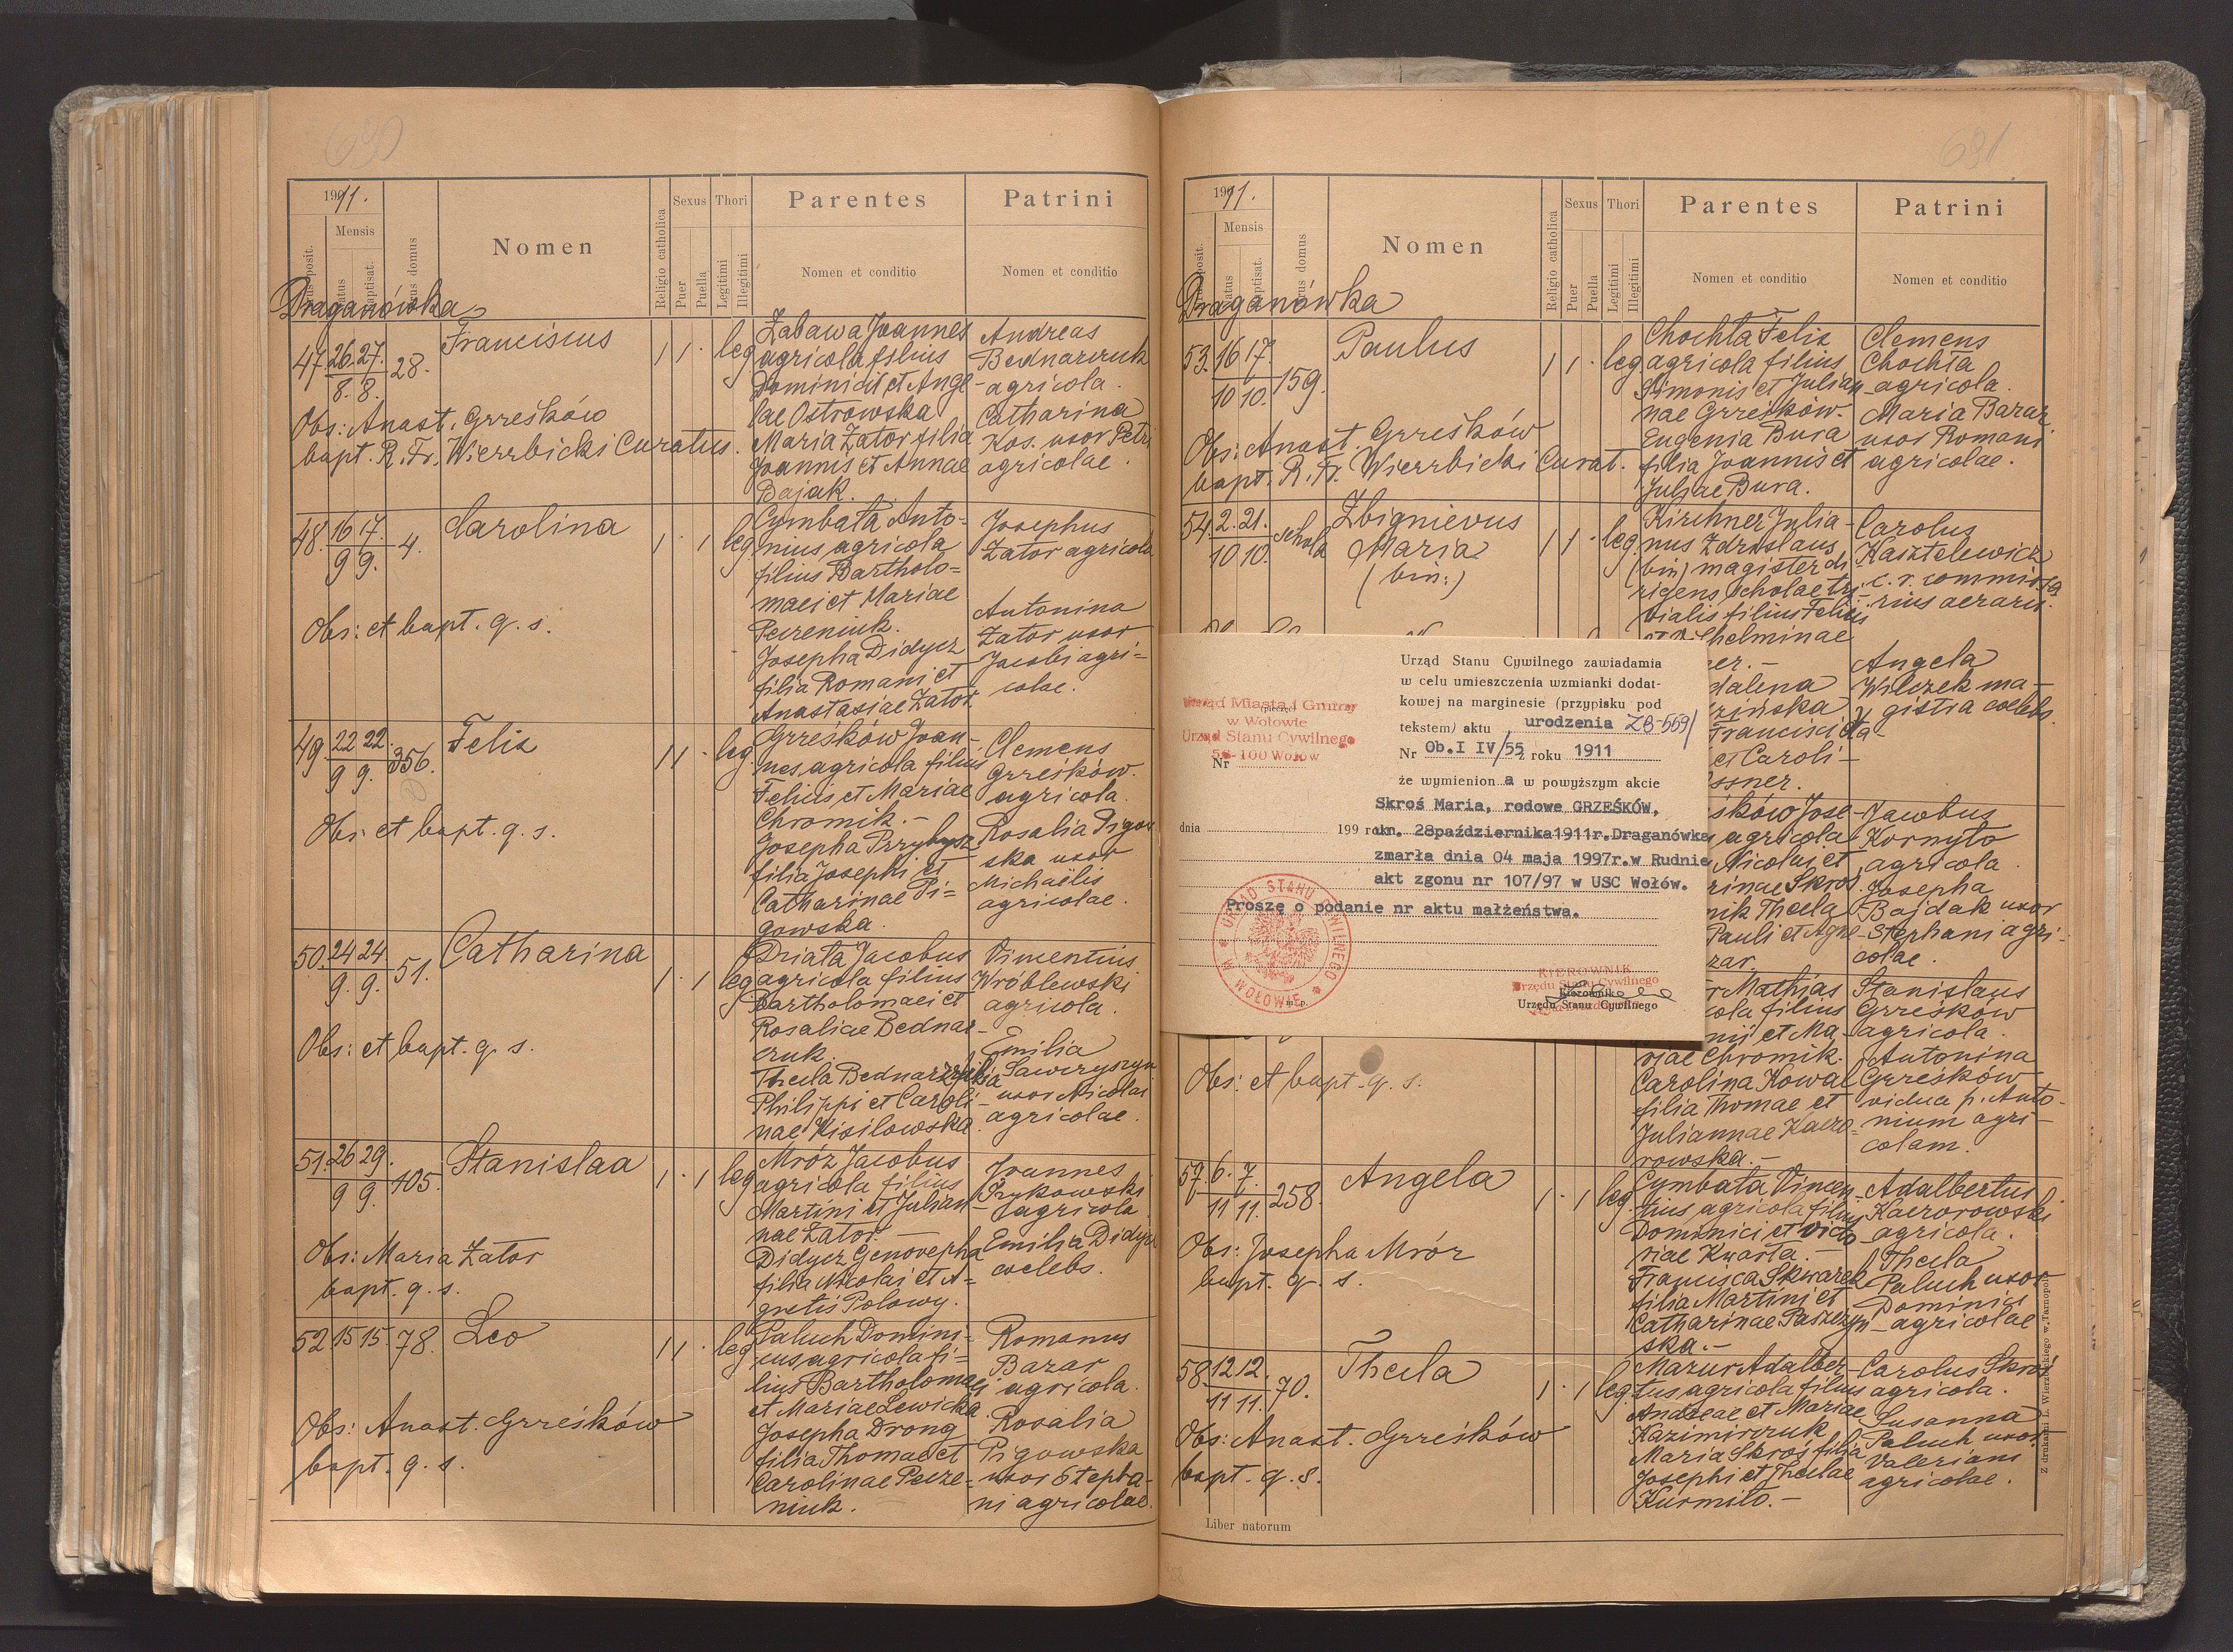 690
1911.
Nus posit.
Mensis
Natus
Baptisat.
Nrus domus
Nomen
Religio catholica
Sexus
Puer
Puella
Thori
Legitimi
Illegitimi
Parentes
Nomen et conditio
Patrini
Nomen et conditio
Draganówka
47. 26. 27. 28.
8. 8.
Franciscus
1 1 · leg
Zabawa Joannes
agricola filius
Dominici et Ange-
lae Ostrowska
Maria Zator filia
Joannis et Annae
Bajak.
Andreas
Bednarczuk
agricola.
Catharina
Kos. uxor Petri
agricolae.
Obs: Anast. Grześków
bapt. R. Fr. Wierzbicki Curatus.
48. 16 17. 4.
9 9.
Carolina
1 · 1 leg.
Cymbała Anto-
nius agricola
filius Bartholo=
maei et Mariae
Peczeniuk.
Josepha Didycz
filia Romani et
Anastasiae Zator
Josephus
Zator agricola
Antonina
Zator uxor
Jacobi agri=
colae.
Obs: et bapt. q. s.
49. 22 22. 356.
9 9.
Felix
1 1 · leg.
Grześków Joan-
nes agricola filius
Felicis et Mariae
Chromik. -
Josepha Przybysz
filia Josephi et
Catharinae Pi=
gowska.
Clemens
Grześków.
agricola.
Rosalia Pigow
ska uxor
Michaëlis
agricolae.
Obs: et bapt. q. s.
50. 24 24 51.
9. 9.
Catharina
1 · 1 leg
Działa Jacobus
agricola filius
Bartholomaei et
Rosaliae Bednar-
czuk.
Thecla Bednarz filia
Philippi et Caroli-
nae Kisilowska.
Vincentius
Wróblewski
agricola.
Emilia
Sawczyszyn
uxor Nicolai
agricolae.
Obs: et bapt. q. s.
51. 26 29. 105.
9 9.
Stanislaa
1 · 1 leg
Mróz Jacobus
agricola filius
Martini et Julian-
nae Zator. -
Didycz Genovepha
filia Nicolai et A=
gnetis Polowy.
Joannes
agricola
Emilia Didycz
coelebs.
Obs: Maria Zator
bapt. q. s.
52. 15 15. 78.
Leo
1 1 · leg
Paluch Domini-
cus agricola fi=
lius Bartholomaei
et Mariae Lewicka
Josepha Drong
filia Thomae et
Carolinae Pecze-
niuk.
Romanus
Bazar
agricola.
Rosalia
Pigowska
uxor Stepha-
ni agricolae.
Obs: Anast. Grześków
bapt. q. s.
691
1911.
Mensis
Nomen
Religio catholica
Sexus
Puer
Puella
Thori
Legitimi
Illegitimi
Parentes
Nomen et conditio
Patrini
Nomen et conditio
Draganówka
53. 16 17. 159.
10 10.
Paulus
1 1 · leg
Chochla Felix
agricola filius
Simonis et Julian-
nae Grześków. -
Eugenia Bura
filia Joannis et
Juliae Bura.
Clemens
Chochla
agricola.
Maria Bazar
uxor Romani
agricolae.
Obs: Anast. Grześków
bapt. R. Fr. Wierzbicki Curat.
54. 2. 21. schola
10 10.
Zbignievus
Maria
(bin:)
1 1 · leg.
Kirchner Julia-
nus Zdzislaus,
(bin) magister di-
rigens scholae tri-
vialis filius Felicis
et Wilhelminae
er. -
dalena
zińska
Francisci
et Caroli-
ssner.
Carolus
Kasztelewicz
c. r. commissa
rius aerarii.
Angela
Wilczek ma-
gistra coelebs.
Urząd Stanu Cywilnego zawiadamia
w celu umieszczenia wzmianki dodat-
kowej na marginesie (przypisku pod
tekstem) aktu urodzenia ZB-559/
Nr Ob.I IV/55 z roku 1911
że wymienion a w powyższym akcie
Skroś Maria, rodowe GRZEŚKÓW,
ur. 28października1911r.Draganówka
zmarła dnia 04 maja 1997r.w Rudnie
akt zgonu nr 107/97 w USC Wołów.
Proszę o podanie nr aktu małżeństwa.
Urząd Miasta i Gminy
(pieczęć)
w Wołowie
Urząd Stanu Cywilnego
56-100 Wołów
Nr
dnia 199 roku
URZĄD STANU CYWILNEGO W WOŁOWIE
m.p.
KIEROWNIK
Urzędu Stanu Cywilnego
Kierownik
Urzędu Stanu Cywilnego
ków Jose-
agricola
Nicolai et
rinae Skroś
nik Thecla
Pauli et Agne-
zar.
Jacobus
Kornyło
agricola.
Josepha
Bajdak uxor
Stephani agri-
colae.
r Mathias
cola filius
nii et Ma-
riae Chromik.
Carolina Kowal
filia Thomae et
Juliannae Kaczo-
rowska. -
Stanislaus
Grześków
agricola.
Antonina
Grześków
vidua p. Anto-
nium agri-
colam.
Obs: et bapt. q. s.
57. 6. 7. 258.
11 11.
Angela
1 · 1 leg.
Cymbała Vincen-
tius agricola filius
Dominici et Victo-
riae Kwarta. -
Francisca Skwarek
filia Martini et
Catharinae Paszczyn-
ska. -
Adalbertus
Kaczorowski
agricola.
Thecla
Paluch uxor
Dominici
agricolae
Obs: Josepha Mróz
bapt. q. s.
58. 12 12. 70.
11 11.
Thecla
1 · 1 leg.
Mazur Adalber-
tus agricola filius
Andreae et Mariae
Kazimirczuk
Maria Skroś filia
Josephi et Theclae
Kurmiło. -
Carolus Skroś
agricola.
Susanna
Paluch uxor
Valeriani
agricolae.
Obs: Anast. Grześków
bapt. q. s.
Liber natorum
Z drukarni L. Wierzbickiego w Tarnopolu